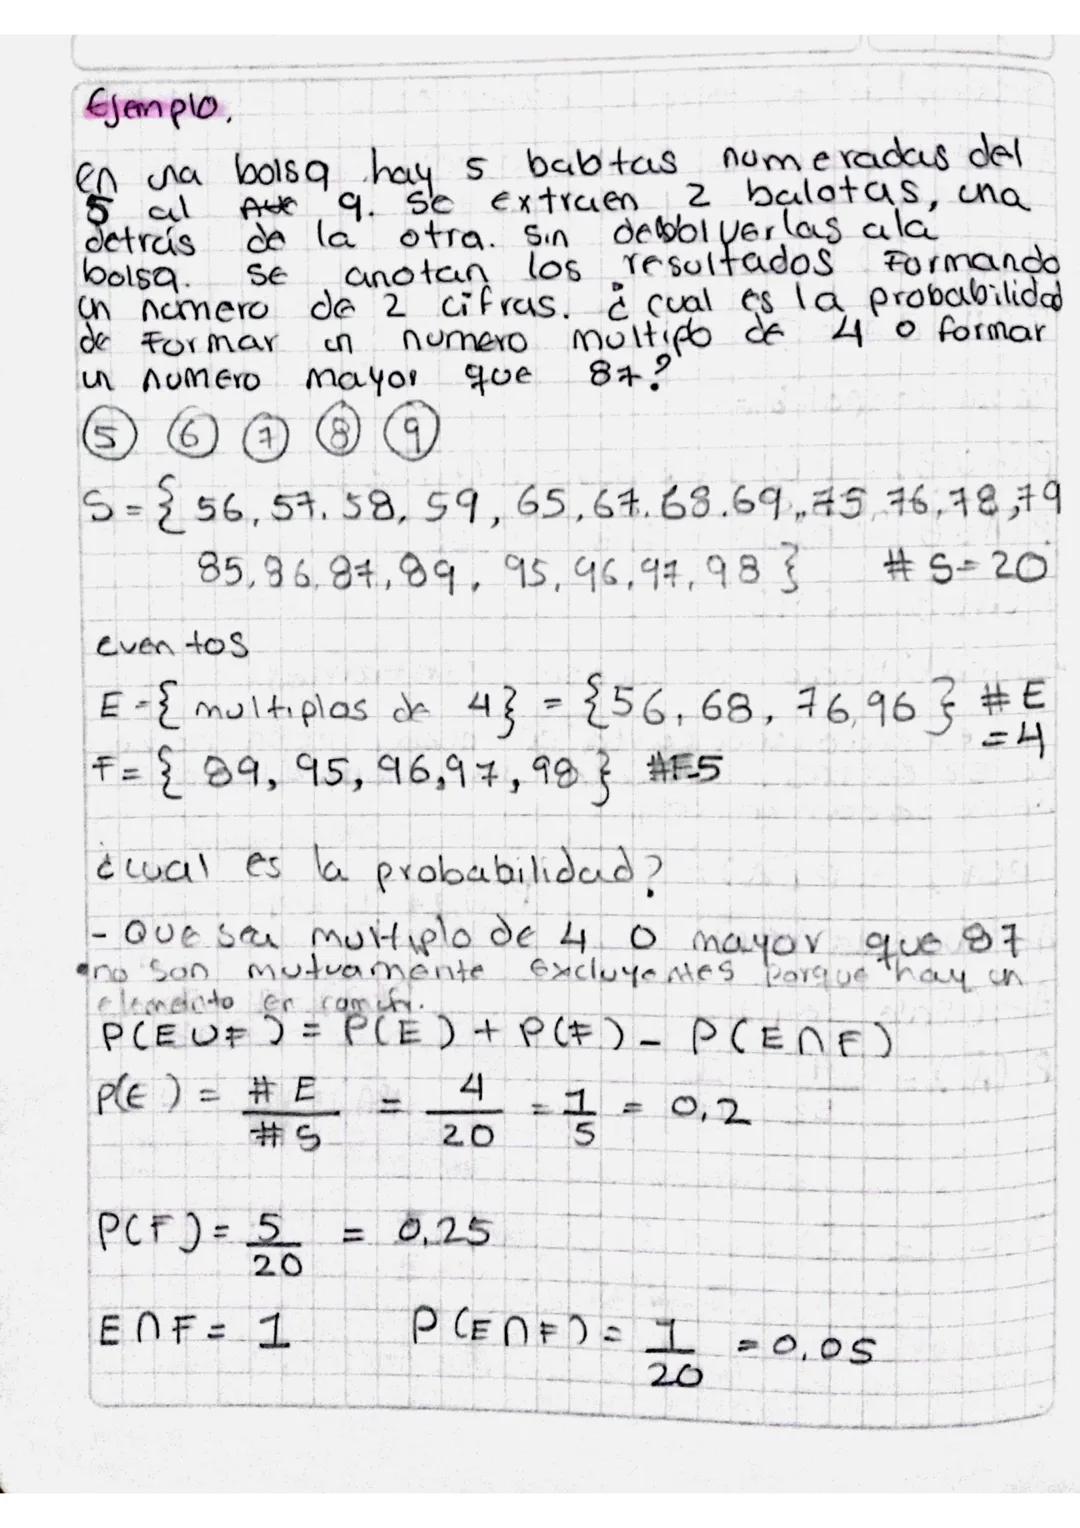 Ejemplo.
en una bolsa hay 5 balotas numeradas del
5 al 9. se extraen 2 balotas, una
detrás de la otra. sin debbolverlas ala
bolsa. se anotan los resultados Formando
un numero de 2 cifras. ¿ cual es la probabilidad
de Formar un numero multiplo de 4 o formar
un numero mayor que 87?
5 6 7 8 9
S = { 56, 57. 58, 59, 65, 67. 68. 69, 75, 76, 78, 79
85, 86, 87, 89, 95, 96, 97, 98 } # S = 20
eventos
E = { multiplos de 4} = {56, 68, 76, 96 } # E
= 4
F = { 89, 95, 96, 97, 98 } #F=5
¿cual es la probabilidad?
- Que sea multiplo de 4 o mayor que 87
• no son mutuamente excluyentes porque hay un
elemento en comun.
P(E ∪ F ) = P(E ) + P(F) - P(E ∩ F)
P(E ) = # E / # S = 4/20 = 1/5 = 0,2
P(F) = 5/20 = 0,25
E ∩ F = 1 P (E ∩ F) = 1/20 = 0,05